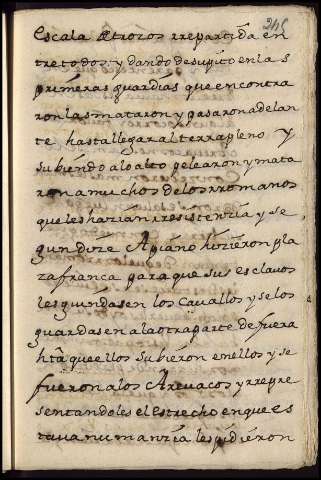 245
escala atrozos rrepartida en
tretodos: y dando desupito enlas
primeras guardias que encontra
ron las mataron y pasaron adelan
te hasta llegar al terrapleno y
subiendo alo alto pelearon y mata
ron a muchos delos rromanos
que les hazian rresistenzia y se
gun dize Apiano hizieron pla
za franca para que sus esclavos
les guindasen los Cavallos y selos
guardasen ala otra parte de fuera
hta que ellos subieron enellos y se
fueron alos Arevacos y rrepre
sentandoles el estrecho en que es
tava numanzia les pidieron